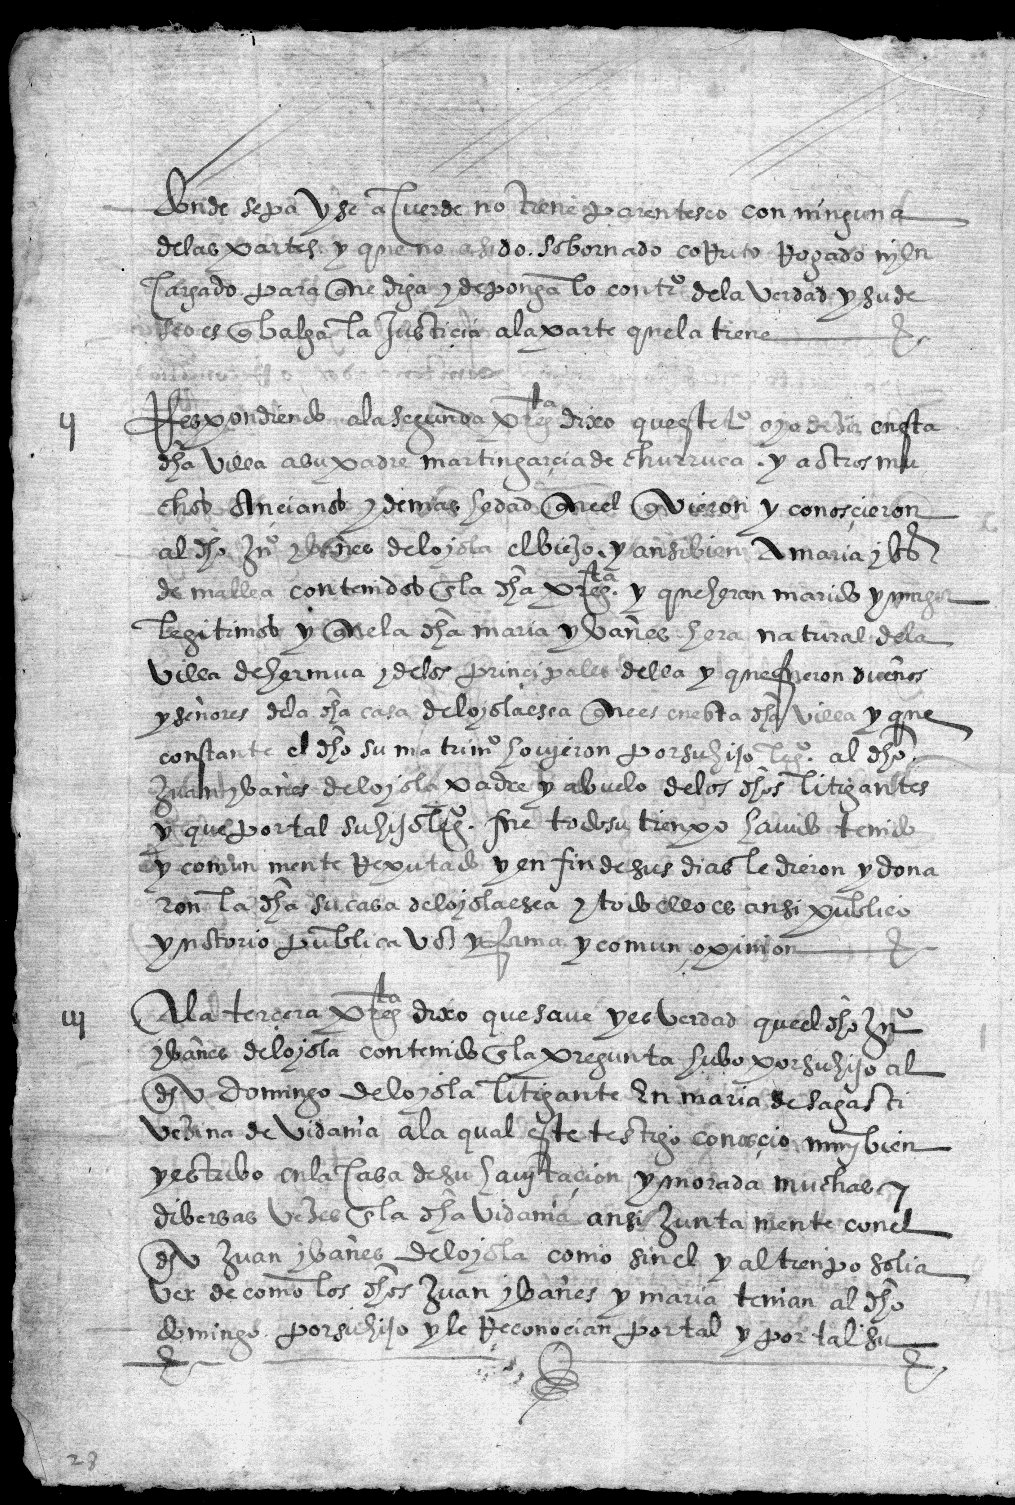 donde sepa y se acuerde no tiene parentesco con ninguna
delas partes y que no a sido sobornado coRuto Rogado nyen
cargado para que diga y deponga lo contro dela verdad y su de
seo es q balga la Justicia ala parte que la tiene
ij Respondiendo ala segunda pregta dixo queste to oyo dezir enesta
dha villa a su padre martin garcia de churruca . y a otros mu
chos ancianos y de mas hedad quel q vieron y conoscieron
al dho Juo ybañes deloyola elbiejo y ansi bien a maria ybas
de mallea contenidos en la dha pregta. y que heran marido y muger
legitimos y quela dha maria ybañes hera natural dela
villa de hermua y delos principales della y que fueron dueños
y señores dela dha casa deloyolaesea que es enesta dha villa y que
constante el dho su matrimo houyeron por su hijo lego. al dho
Juan ybañes deloyola padre y abuelo delos dhos litigantes
y que por tal su hijo lego. fue todo su tienpo havido tenido
y comun mente Reputado y en fin de sus dias le dieron y dona
ron la dha su casa deloyolaesea y todo ello es ansi publico
y notorio publica voz y fama y comun opinion
iij Ala tercera pregta dixo que save y es verdad quel dho Juo
ybañes deloyola contenido en la pregunta hubo por su hijo al
dho domingo deloyola litigante En maria de sagasti
vezina de vidania ala qual este testigo conoscio muy bien
y estubo en la casa de su havitacion y morada muchas y
diversas vezes en la dha vidania ansi Junta mente con el
dho Juan ybañes deloyola como sin el y al tienpo solia
ver de como los dhos Juan ybañes y maria tenian al dho
domingo por su hijo y le Reconocian por tal y por tal su
28